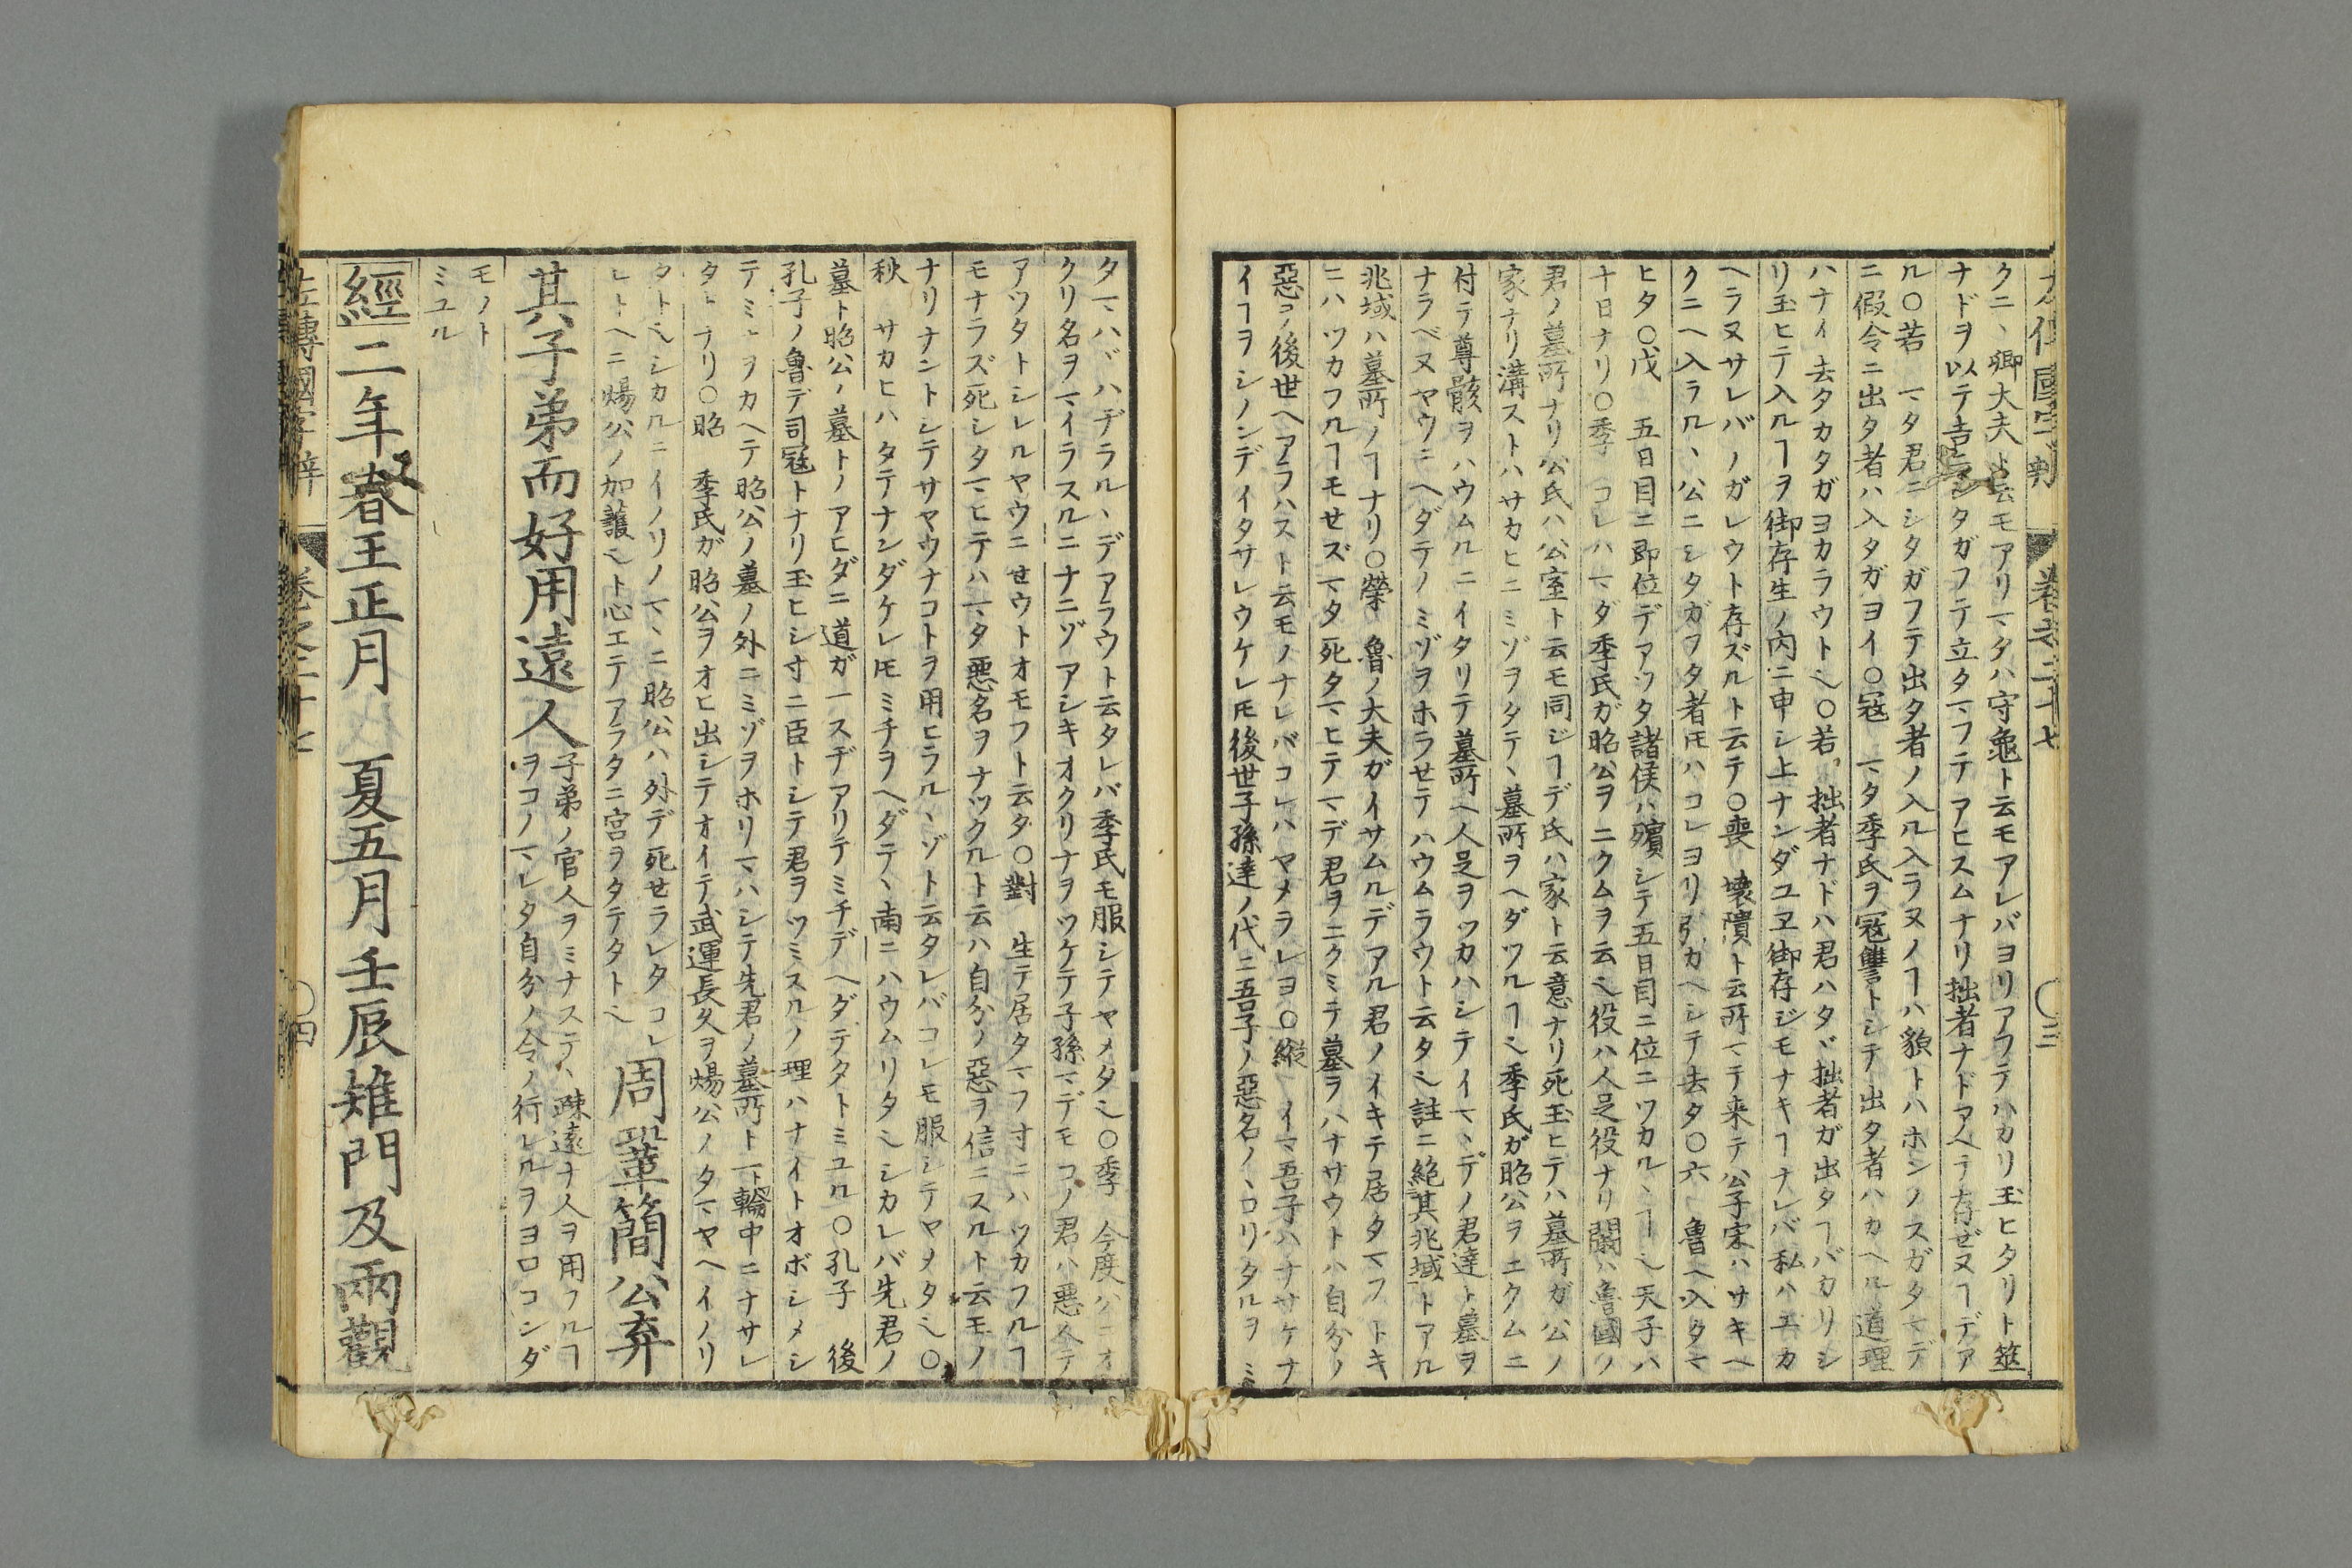 クニヽ卿大夫ト云モアリマタハ守龜ト云モアレバヨリアフテハカリ玉ヒタリト筮
ナドヲ以テ シタガフテ立タマフテアヒスムナリ拙者ナドアヘテ存ゼヌヿデア
ル〇若 マタ君ニシタガフテ出タ者ノ入ル入ラヌノヿハ貌トハホンノスガタマデ
ニ假令ニ出タ者ハ入タガヨイ〇寇 マタ季氏ヲ寇讐トシテ出タ者ハカヘル道理
ハナイ去タカタガヨカラウト乀〇若 拙者ナドハ君ハタヾ拙者ガ出タヿバカリシ
リ玉ヒテ入ルヿヲ御存生ノ内ニ申シ上ナンダユヱ御存ジモナキヿナレバ私ハエカ
ヘラヌサレバノガレウト存ズルト云テ〇喪 壊隤ト云所マデ来テ公子宋ハサキヘ
クニヘ入ラルヽ公ニシタガヲタ者𪜈ハコレヨリ引カヘシテ去タ〇六 魯ヘ入タマ
ヒタ〇戊 五日目ニ即位デアツタ諸侯ハ殯シテ五日目ニ位ニツカルヽヿ乀天子ハ
十日ナリ〇季 コレハマダ季氏ガ昭公ヲニクムヲ云乀役ハ人足役ナリ闞ハ魯國ノ
君ノ墓所ナリ公氏ハ公室ト云モ同ジヿデ氏ハ家ト云意ナリ死玉ヒテハ墓所ガ公ノ
家ナリ溝ストハサカヒニミゾヲタテヽ墓所ヲヘダツルヿ乀季氏ガ昭公ヲニクムニ
付テ尊骸ヲハウムルニイタリテ墓所ヘ人足ヲツカハシテイマヽデノ君達ト墓ヲ
ナラベヌヤウニヘダテノミゾヲホラセテハウムラウト云タ乀註ニ絶其兆域トアル
兆域ハ墓所ノヿナリ〇榮 魯ノ大夫ガイサムルデアル君ノイキテ居タマフトキ
ニハツカフルヿモせズマタ死タマヒテマデ君ヲニクミテ墓ヲハナサウトハ自分ノ
惡ヲ後世ヘアラハスト云モノナレバコレハヤメラレヨ〇縱 イマ吾子ハナサケナ
イヿヲシノンデイタサレウケレ𪜈後世子孫達ノ代ニ吾子ノ惡名ノヽコリタルヲミ
タマハヾハヂラルヽデアラウト云タレバ季氏モ服シテヤメタ乀〇季 今度ハ
クリ名ヲマイラスルニナニゾアシキオクリナヲツケテ子孫マデモコノ君ハ惡人デ
アツタトシレルヤウニせウトオモフト云タ〇對 生テ居タマフ寸ニハツカフルヿ
モナラズ死シタマヒテハマタ惡名ヲナツクルト云ハ自分ノ惡ヲ信ニスルト云モノ
ナリナントシテサヤウナコトヲ用ヒラルヽゾト云タレバコレモ服シテヤメタ乀〇
秋 サカヒハタテナンダケレ𪜈ミチヲヘダテヽ南ニハウムリタ乀シカレバ先君ノ
墓ト昭公ノ墓トノアヒダニ道ガ一スヂアリテミチデヘダテタトミユル〇孔子 後
孔子ノ魯デ司寇トナリ玉ヒシ寸ニ臣トシテ君ヲツミスルノ理ハナイトオボシメシ
テミヽヲカヘテ昭公ノ墓ノ外ニミゾヲホリマハシテ先君ノ墓所ト一ト輪中ニナサレ
タトナリ〇昭 季氏ガ昭公ヲオヒ出シテオイテ武運長久ヲ煬公ノタマヤヘイノリ
タト乀シカルニイノリノマヽニ昭公ハ外デ死せラレタコレ
レトヘニ煬公ノ加護乀ト心エテアラタニ宮ヲタテタト乀
周鞏簡公弃
其子弟而好用遠人
子弟ノ官人ヲミナステヽ疎遠ナ人ヲ用フルヿ
ヲコノマレタ自分ノ令ノ行レルヲヨロコンダ
モノト
ミユル
經二年春王正月 夏五月壬辰雉門及兩觀
左傳國字辯 卷之二十七 〇四